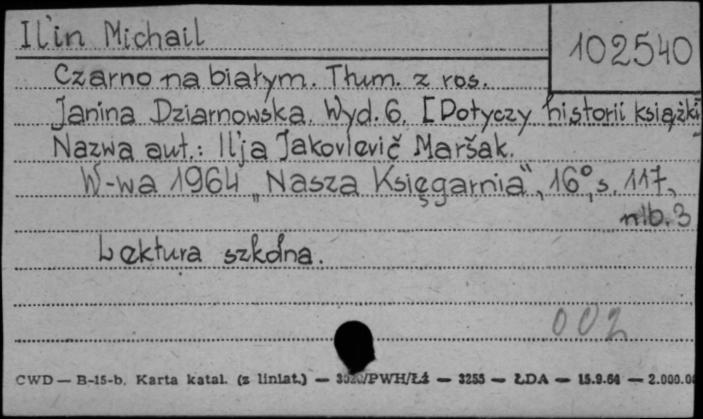 Il'in Michail
102540
Czarno na białym. Tłum. z ros.
Janina Dziarnowska. Wyd. 6. [Dotyczy historii książki]
Nazwa aut.: Il'ja Jakovlevič Maršak.
W-wa 1964 „Nasza Księgarnia", 16°, s. 117,
nlb. 3
Lektura szkolna.
002
CWD — B-15-b. Karta katal. (z liniat.) — /PWH/Łź — 3255 — ŁDA — 15.9.64 — 2.000.0